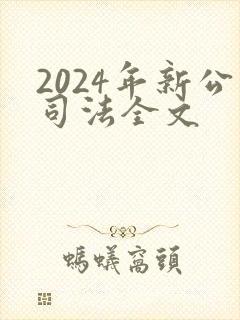 2024年新公
司法全文
螞蟻窩頭